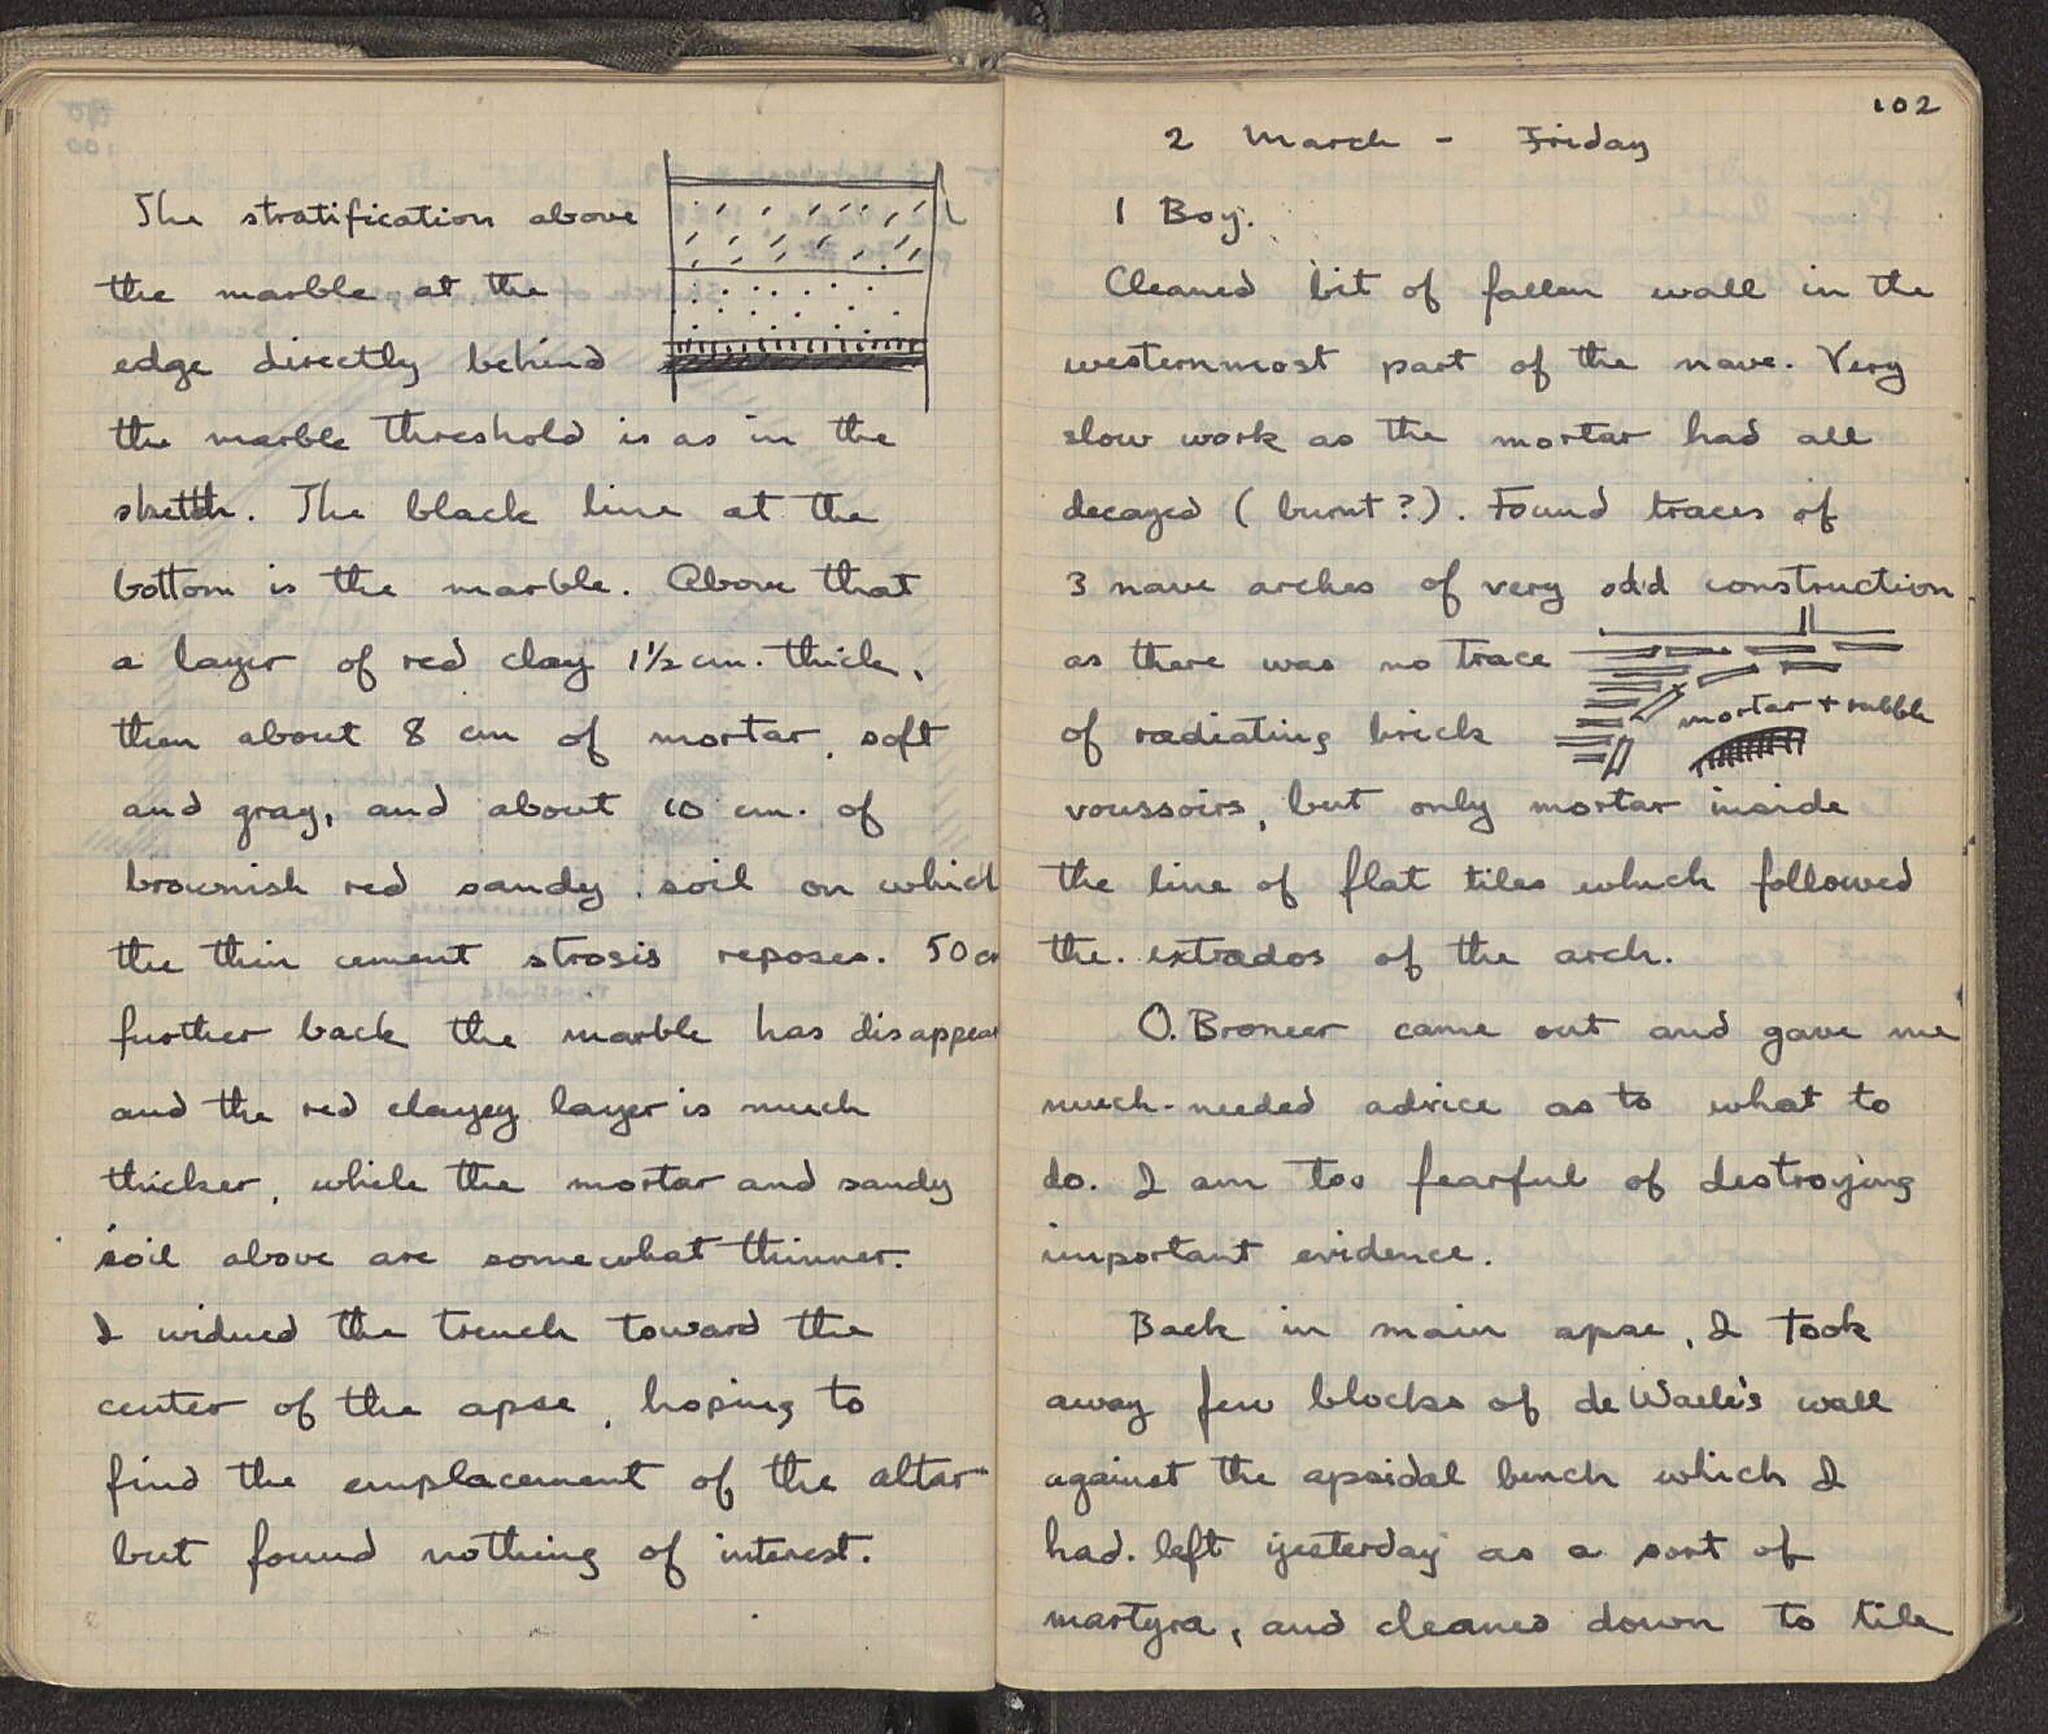 The stratification above
the marble, at the
edge directly behind
the marble threshold is as in the
sketch. The black line at the
bottom is the marble. Above that
a layer of red clay 1½ cm. thick,
then about 8 cm of mortar, soft
and gray, and about 10 cm. of
brownish red sandy soil on which
the thin cement strosis reposes. 50 c
further back the marble has disappea
and the red clayey layer is much
thicker, while the mortar and sandy
soil above are somewhat thinner.
I widened the trench toward the
center of the apse, hoping to
find the emplacement of the altar
but found nothing of interest.
102
2 March - Friday
1 Boy.
Cleaned bit of fallen wall in the
westernmost part of the nave. Very
slow work as the mortar had all
decayed (burnt?). Found traces of
3 nave arches of very odd construction
as there was no trace
of radiating brick
mortar + rubble
voussoirs, but only mortar inside
the line of flat tiles which followed
the extrados of the arch.
O. Broneer came out and gave me
much-needed advice as to what to
do. I am too fearful of destroying
important evidence.
Back in main apse, I took
away few blocks of de Waele's wall
against the apsidal bench which I
had left yesterday as a sort of
martyra, and cleaned down to tile